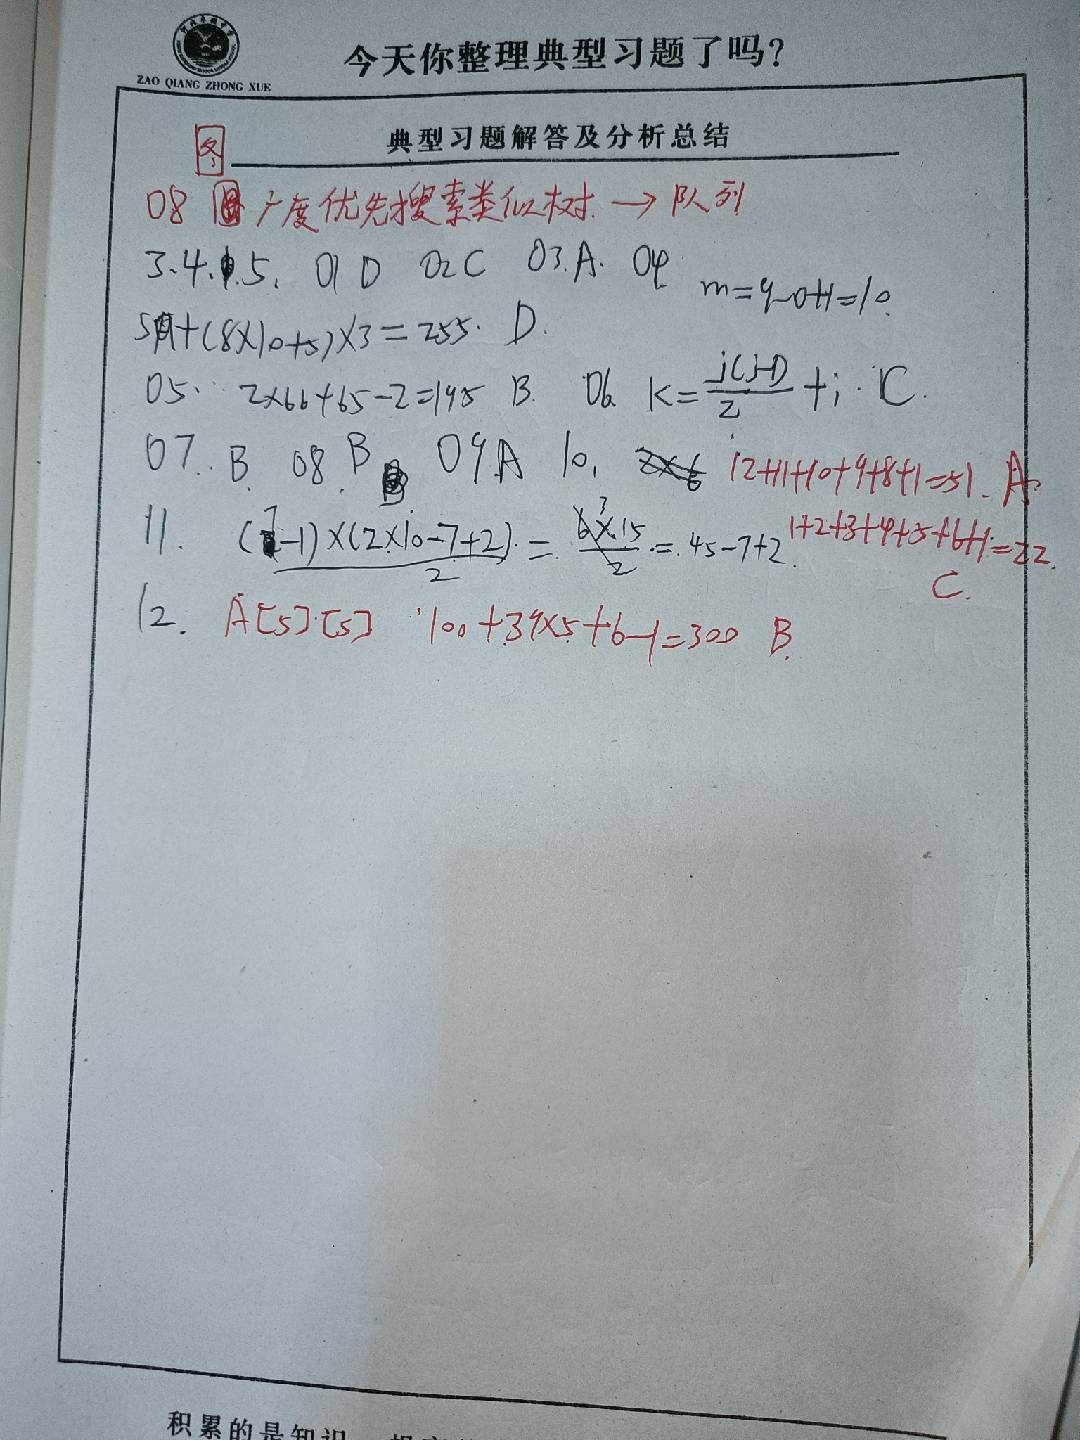 ZAO QIANG ZHONG XUE
今天你整理典型习题了吗?
典型习题解答及分析总结
08 广度优先搜索类似树 → 队列
3.4. 5. 01 D 02 C 03.A. 04 m=9-0+1=10.
+(8×10+5)×3=255. D.
05. 2×66+65-2=195 B. 06. K=j(j-1)/2+i. C.
07. B. 08. B 09 A 10. 12+11+10+9+8+1=51. A.
11. (7-1)×(2×10-7+2)/2=6×15/2=45-7+2 1+2+3+4+5+6+1=22.
C.
12. A[5][5] 100+39×5+6-1=300 B.
积累的是知识